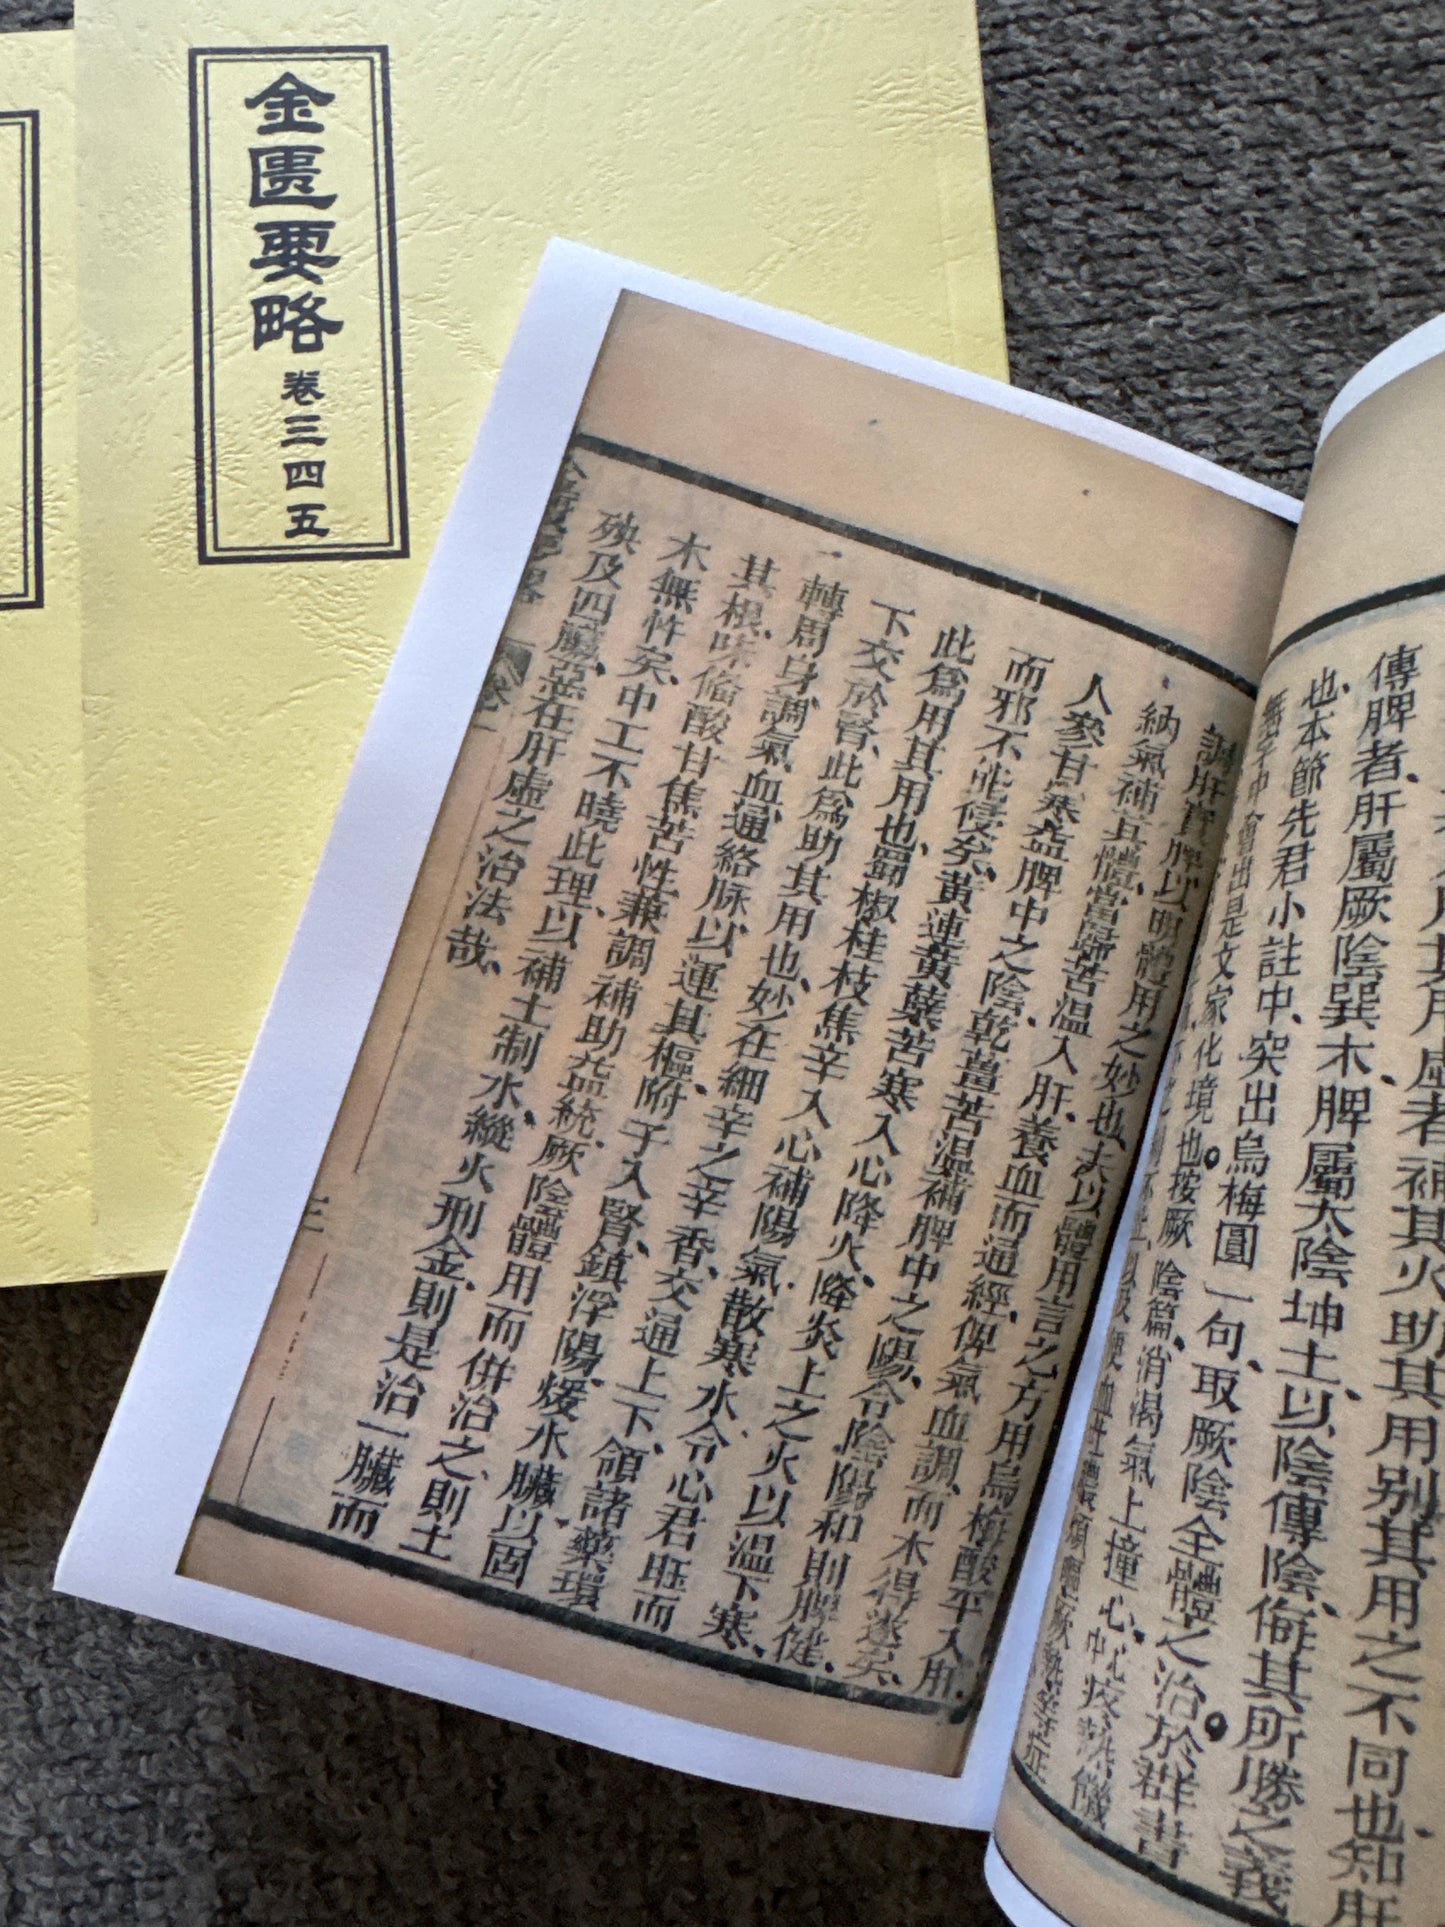 金匱要略
卷三四五
傳脾者肝屬厥陰巽木脾屬太陰坤土以陰傳陰侮其所勝之義
也本節先君小註中突出烏梅圓一句取厥陰全體之治於群書
無字中會出是文家化境也按厥陰篇消渴氣上撞心心中疼熱
調肝實脾以明體用之妙也夫以體用言之方用烏梅酸平入肝
納氣補其體當歸苦溫入肝養血而通經俾氣血調而木得遂矣
人參甘寒益脾中之陰乾薑苦溫補脾中之陽令陰陽和則脾健
而邪不能侵矣黃連黃蘗苦寒入心降火降炎上之火以溫下寒
此為用其用也蜀椒桂枝焦辛入心補陽氣散寒水令心君旺而
下交於腎此為助其用也妙在細辛之辛香交通上下領諸藥環
轉周身調氣血通絡脉以運其樞附子入腎鎮浮陽煖水臟以固
其根味備酸甘焦苦性兼調補助益統厥陰體用而併治之則土
木無忤矣中工不曉此理以補土制水縱火刑金則是治一臟而
殃及四臟惡在肝虛之治法哉
卷一
三